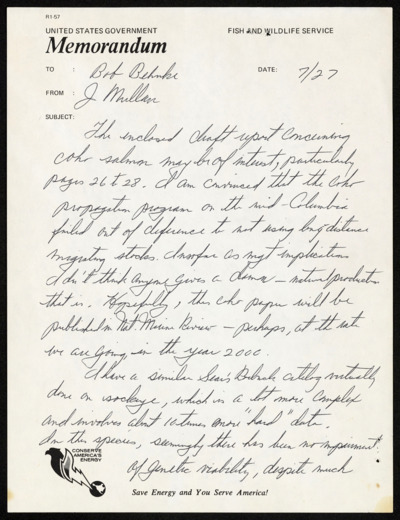 R1-57
UNITED STATES GOVERNMENT FISH AND WILDLIFE SERVICE
Memorandum
TO : Bob Behnke DATE: 7/27
FROM : J Mullan
SUBJECT:
The enclosed draft report concerning
coho salmon may be of interest, particularly
pages 26 to 28. I am convinced that the coho
propagation program on the mid-Columbia
failed out of deference to not using long distance
migrating stocks. Insofar as mgt implications
I don't think anyone gives a damn — natural production
that is. Hopefully, the coho paper will be
published in Nat. Marine Review — perhaps, at the rate
we are going, in the year 2000.
I have a similar Sear's Rebuck catalog virtually
done on sockeye, which is a lot more complex
and involves abt 10 times more "hard" data.
In this species, seemingly there has been no impairment
of genetic viability, despite much
CONSERVE
AMERICA'S
ENERGY
Save Energy and You Serve America!